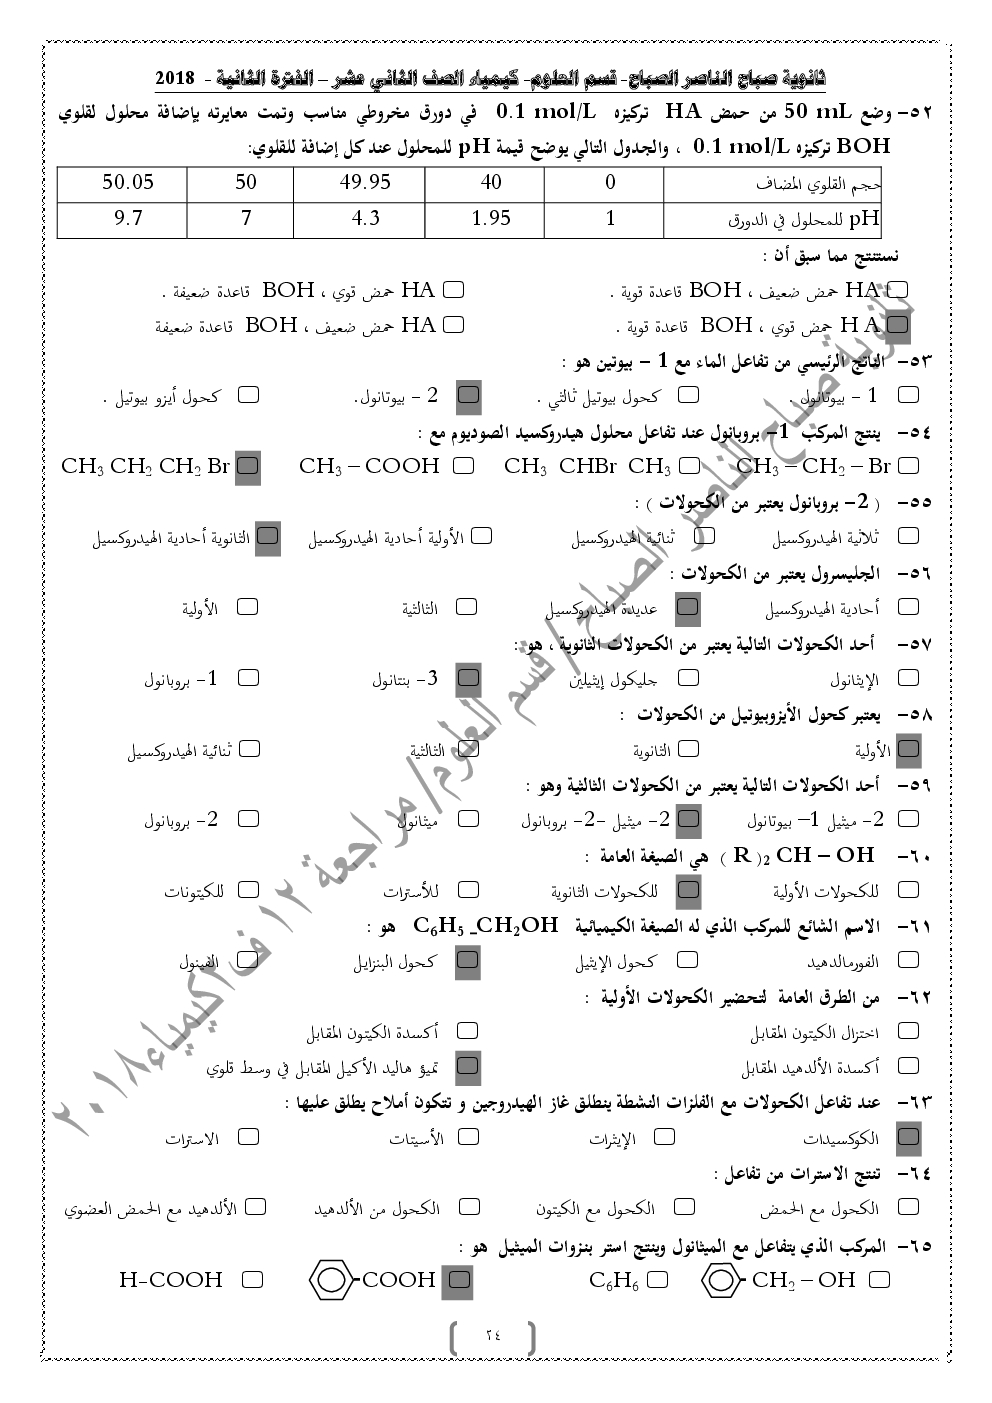 ثانوية صباح الناصر الصباح- قسم العلوم- كيمياء الصف الثاني عشر – الفترة الثانية - 2018
٥٢- وضع 50 mL من حمض HA تركيزه 0.1 mol/L في دورق مخروطي مناسب وتمت معايرته بإضافة محلول لقلوي
BOH تركيزه 0.1 mol/L ، والجدول التالي يوضح قيمة pH للمحلول عند كل إضافة للقلوي:
حجم القلوي المضاف 0 40 49.95 50 50.05
pH للمحلول في الدورق 1 1.95 4.3 7 9.7
نستنتج مما سبق أن :
HA حمض ضعيف ، BOH قاعدة قوية . HA حمض قوي ، BOH قاعدة ضعيفة .
H A حمض قوي ، BOH قاعدة قوية . HA حمض ضعيف ، BOH قاعدة ضعيفة
٥٣- الناتج الرئيسي من تفاعل الماء مع 1 – بيوتين هو :
1 - بيوتانول . كحول بيوتيل ثالثي . 2 - بيوتانول. كحول أيزو بيوتيل .
٥٤- ينتج المركب 1- بروبانول عند تفاعل محلول هيدروكسيد الصوديوم مع :
CH3 – CH2 – Br CH3 CHBr CH3 CH3 – COOH CH3 CH2 CH2 Br
٥٥- ( 2- بروبانول يعتبر من الكحولات ) :
ثلاثية الهيدروكسيل ثنائية الهيدروكسيل الأولية أحادية الهيدروكسيل الثانوية أحادية الهيدروكسيل
٥٦- الجليسرول يعتبر من الكحولات :
أحادية الهيدروكسيل عديدة الهيدروكسيل الثالثية الأولية
٥٧- أحد الكحولات التالية يعتبر من الكحولات الثانوية ، هو :
الإيثانول جليكول إيثيلين 3- بنتانول 1- بروبانول
٥٨- يعتبر كحول الأيزوبيوتيل من الكحولات :
الأولية الثانوية الثالثية ثنائية الهيدروكسيل
٥٩- أحد الكحولات التالية يعتبر من الكحولات الثالثية وهو :
2- ميثيل 1– بيوتانول 2- ميثيل -2- بروبانول ميثانول 2- بروبانول
٦٠- ( R )2 CH – OH هي الصيغة العامة :
للكحولات الأولية للكحولات الثانوية للأسترات للكيتونات
٦١- الاسم الشائع للمركب الذي له الصيغة الكيميائية C6H5 _CH2OH هو :
الفورمالدهيد كحول الإيثيل كحول البنزايل الفينول
٦٢- من الطرق العامة لتحضير الكحولات الأولية :
اختزال الكيتون المقابل أكسدة الكيتون المقابل
أكسدة الألدهيد المقابل تميؤ هاليد الأكيل المقابل في وسط قلوي
٦٣- عند تفاعل الكحولات مع الفلزات النشطة ينطلق غاز الهيدروجين و تتكون أملاح يطلق عليها :
الكوكسيدات الإيثرات الأسيتات الاسترات
٦٤- تنتج الاسترات من تفاعل :
الكحول مع الحمض الكحول مع الكيتون الكحول من الألدهيد الألدهيد مع الحمض العضوي
٦٥- المركب الذي يتفاعل مع الميثانول وينتج استر بنزوات الميثيل هو :
CH2 – OH C6H6 COOH H-COOH
٢٤
ثانوية صباح الناصر الصباح / قسم العلوم / مراجعة ١٢ ف٢كيمياء٢٠١٨